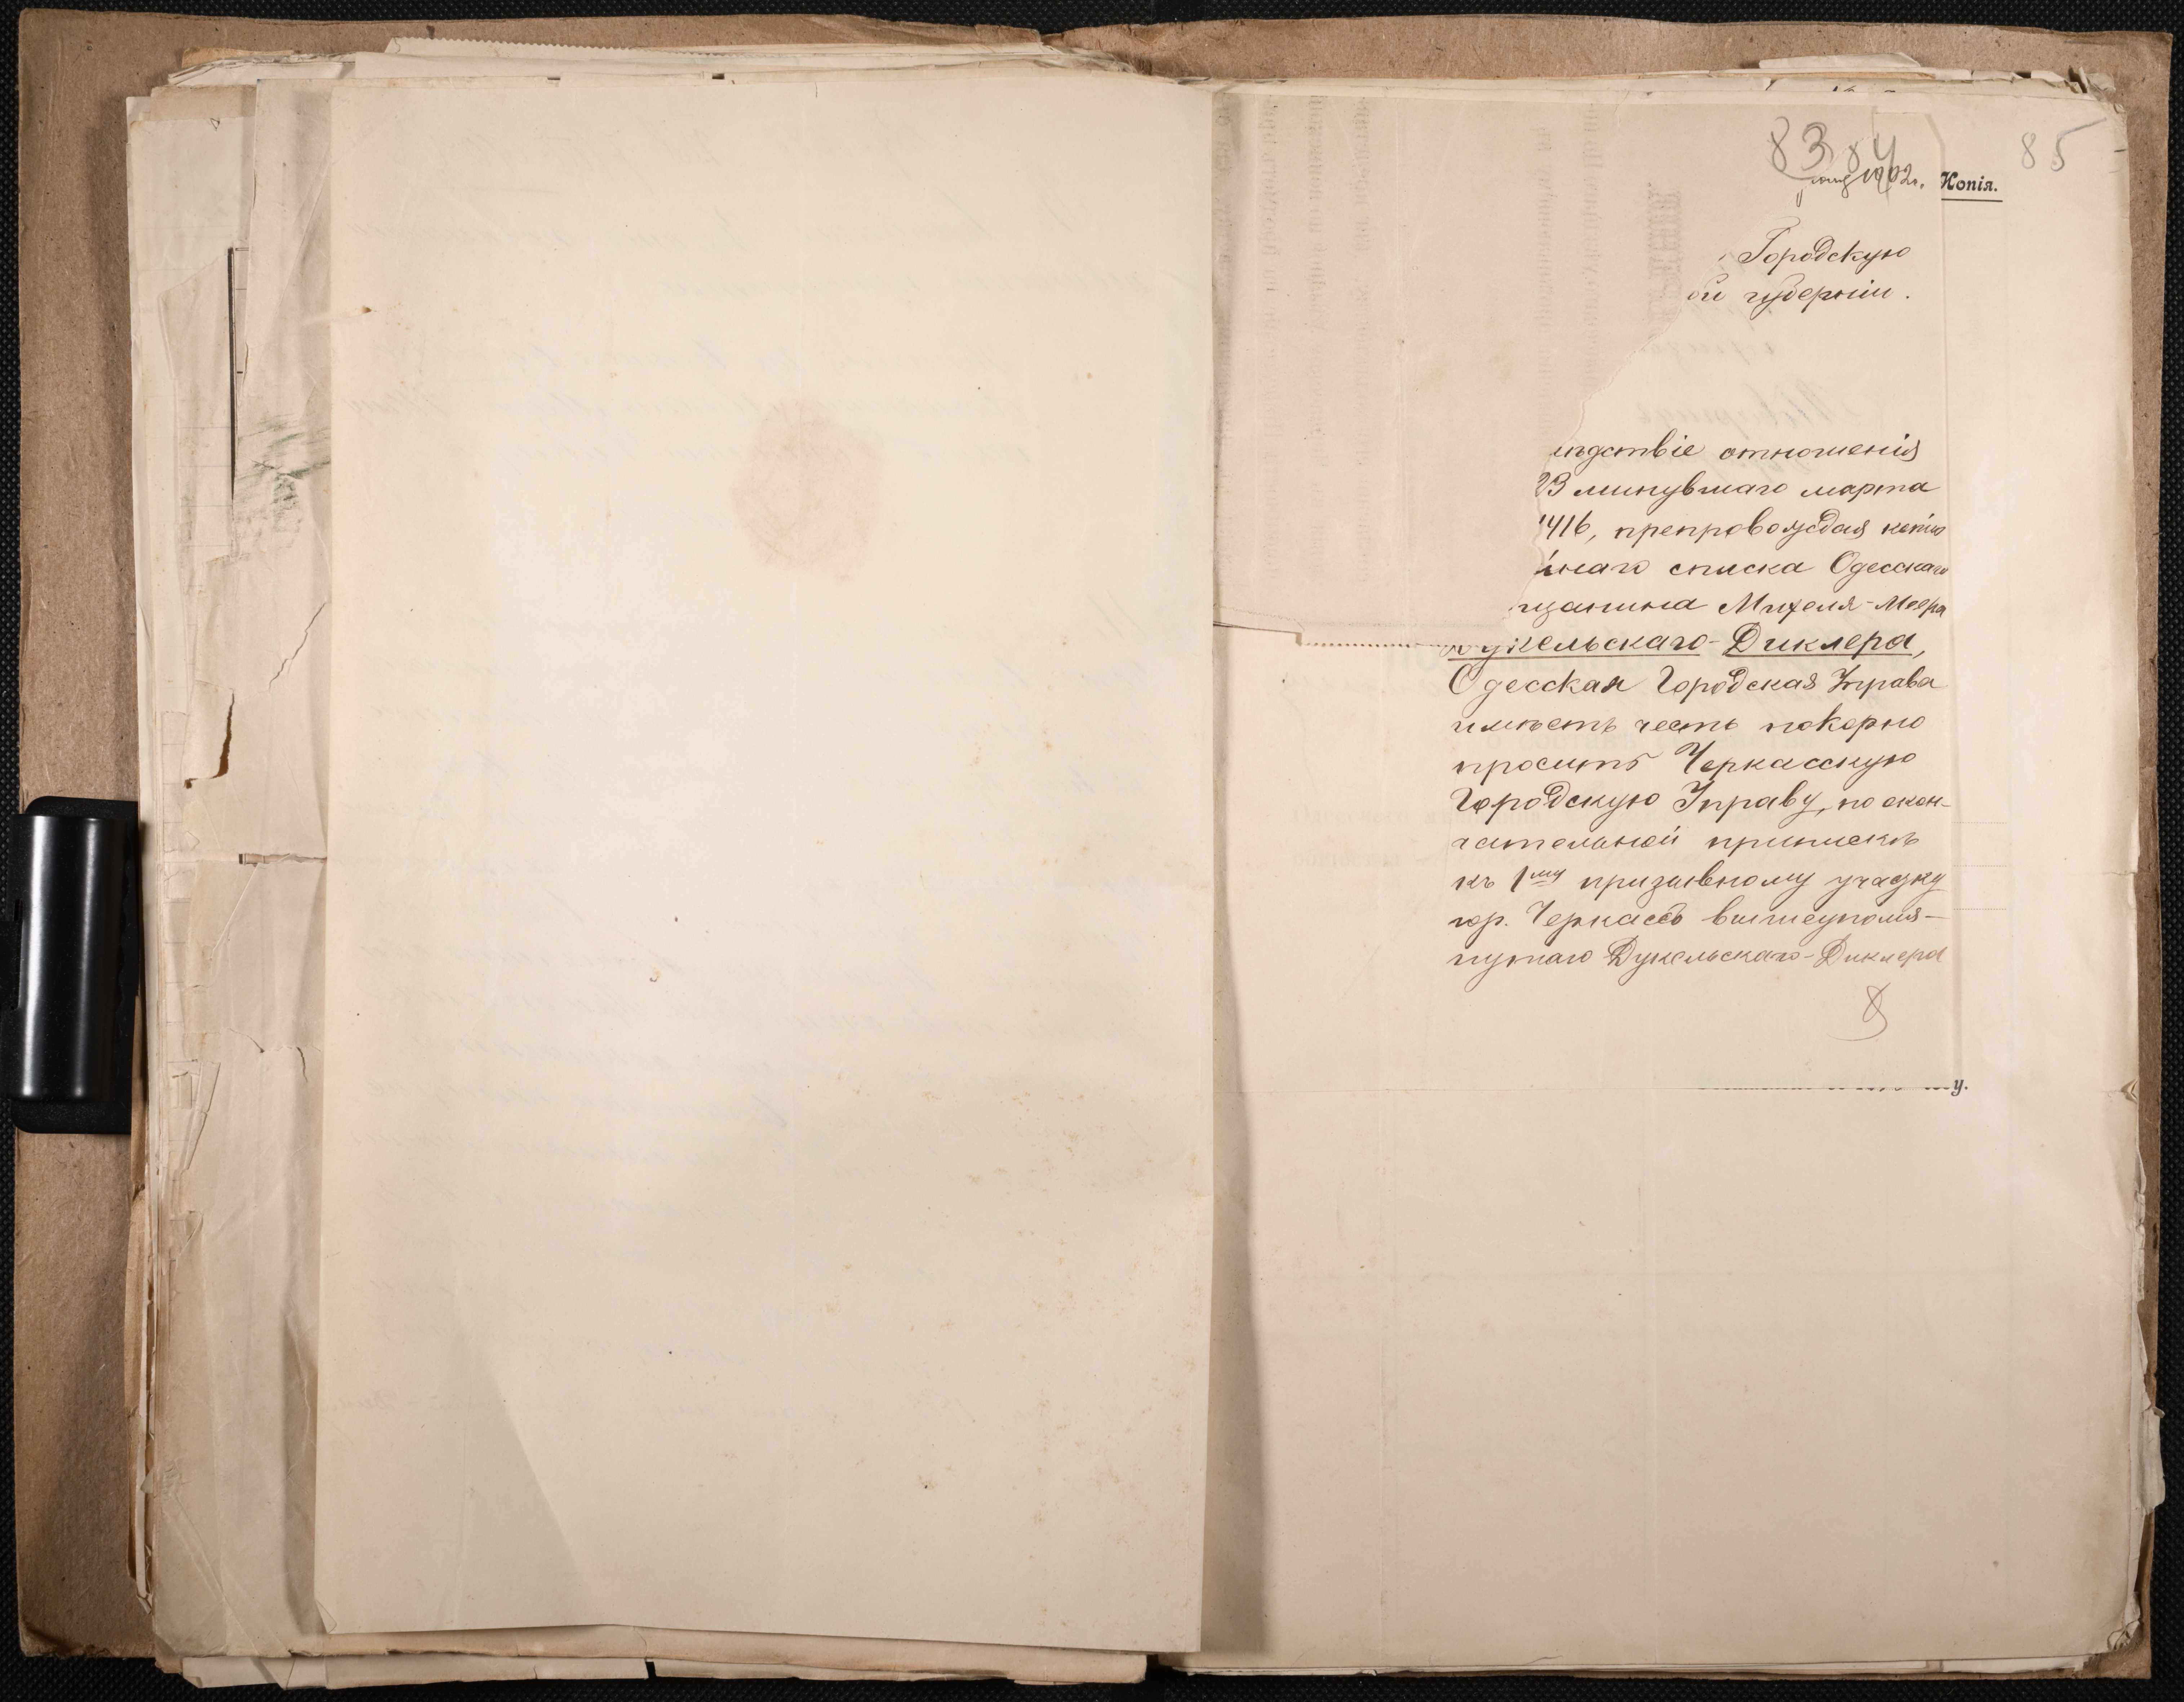 83 84
85
1902 г.
Копія.
Городскую
ой губерніи.
ѣдствіе отношенія
23 минувшаго марта
1416, препровождая копію
наго списка Одесскаго
щанина Михеля-Меера
Дукельскаго-Диклера,
Одесская Городская Управа
имѣетъ честь покорно
проситъ Черкасскую
Городскую Управу, по окон-
чательной припискѣ
къ 1му призывному участку
гор. Черкассъ вышеупомя-
нутаго Дукельскаго-Диклера
у.